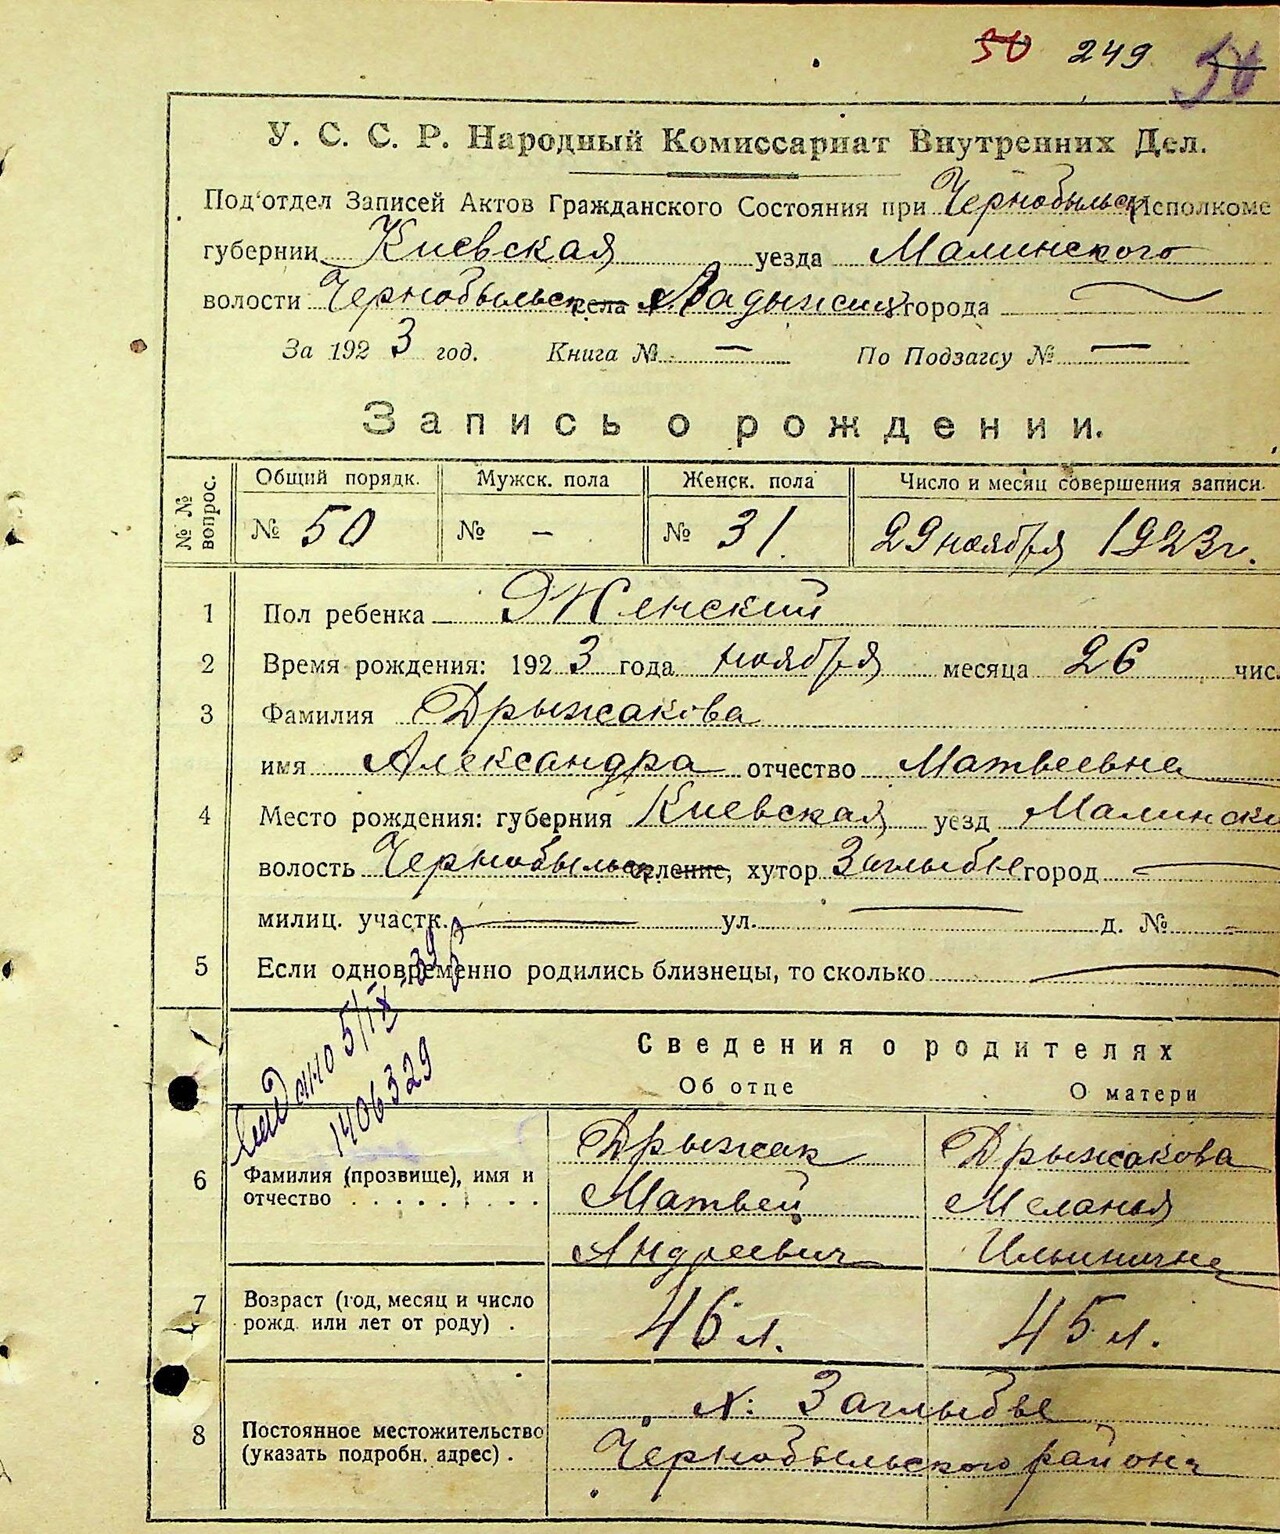 50 249 50
У. С. С. Р. Народный Комиссариат Внутренних Дел.
Под'отдел Записей Актов Гражданского Состояния при Чернобыльск Исполкоме
губернии Киевская уезда Малинского
волости Чернобыльск села Ладыжич города —
За 1923 год. Книга № — По Подзагсу № —
Запись о рождении.
№№ вопрос. Общий порядк. Мужск. пола Женск. пола Число и месяц совершения записи
№ 50 № - № 31. 29 ноября 1923 г.
1 Пол ребенка Женский
2 Время рождения: 1923 года ноября месяца 26 чис.
3 Фамилия Дрыжакова
имя Александра отчество Матвеевна
4 Место рождения: губерния Киевская уезд Малински
волость Чернобыльск селение, хутор Заглыбье город —
милиц. участк. — ул. — д. № -
5 Если одновременно родились близнецы, то сколько —
Выдано 5/IX-39
1406329
Сведения о родителях
Об отце О матери
6 Фамилия (прозвище), имя и отчество . . . . . . . . .
Дрыжак Дрыжакова
Матвей Меланья
Андреевич Ильинична
7 Возраст (год, месяц и число рожд. или лет от роду) . 46 л. 45 л.
8 Постоянное местожительство (указать подробн. адрес) .
х: Заглыбье
Чернобыльского района